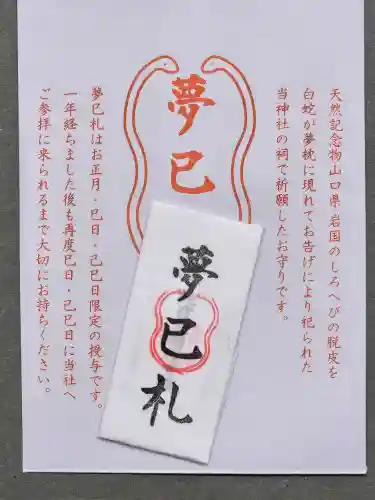 天然記念物山口県岩国のしろへびの脱皮を
白蛇が夢枕に現れてお告げにより祀られた
当神社の祠で祈願したお守りです。
夢巳
夢巳札はお正月・巳日・己巳日限定の授与です。
一年経ちました後も再度巳日・己巳日に当社へ
ご参拝に来られるまで大切にお持ちください。
夢巳札